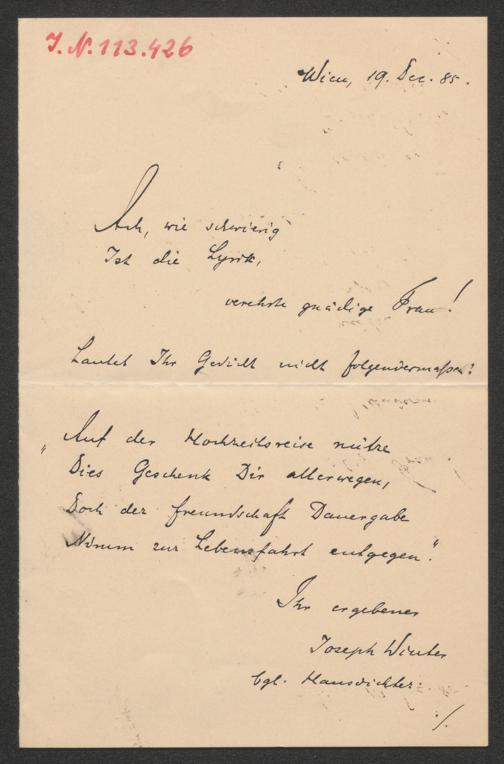 J.N. 113.426
Wien, 19. Dec. 85.
Ach, wie schwierig
Ist die Lyrik,
verehrte gnädige Frau!
Lautet Ihr Gedicht nicht folgendermaßen:
„Auf der Hochzeitsreise nütze
Dies Geschenk Dir allerwegen,
Doch der Freundschaft Dauergabe
Nimm zur Lebensfahrt entgegen."
Ihr ergebener
Joseph Winter
bgl. Hausdichter.
./.